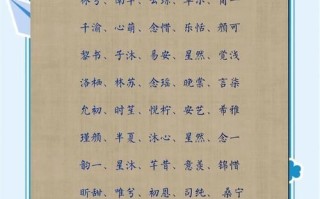 千渝、心萌、念惜、乐恬、颜可
黎书、子沐、易安、星然、觉浅
洛栖、林苏、念瑶、晚棠、言柒
允初、时笙、悦柠、安艺、希雅
瑾颜、半夏、沐心、星然、念一
韵一、星沐、芊昔、意羡、锦惜
昕甜、唯兮、初恩、司纯、桑宁